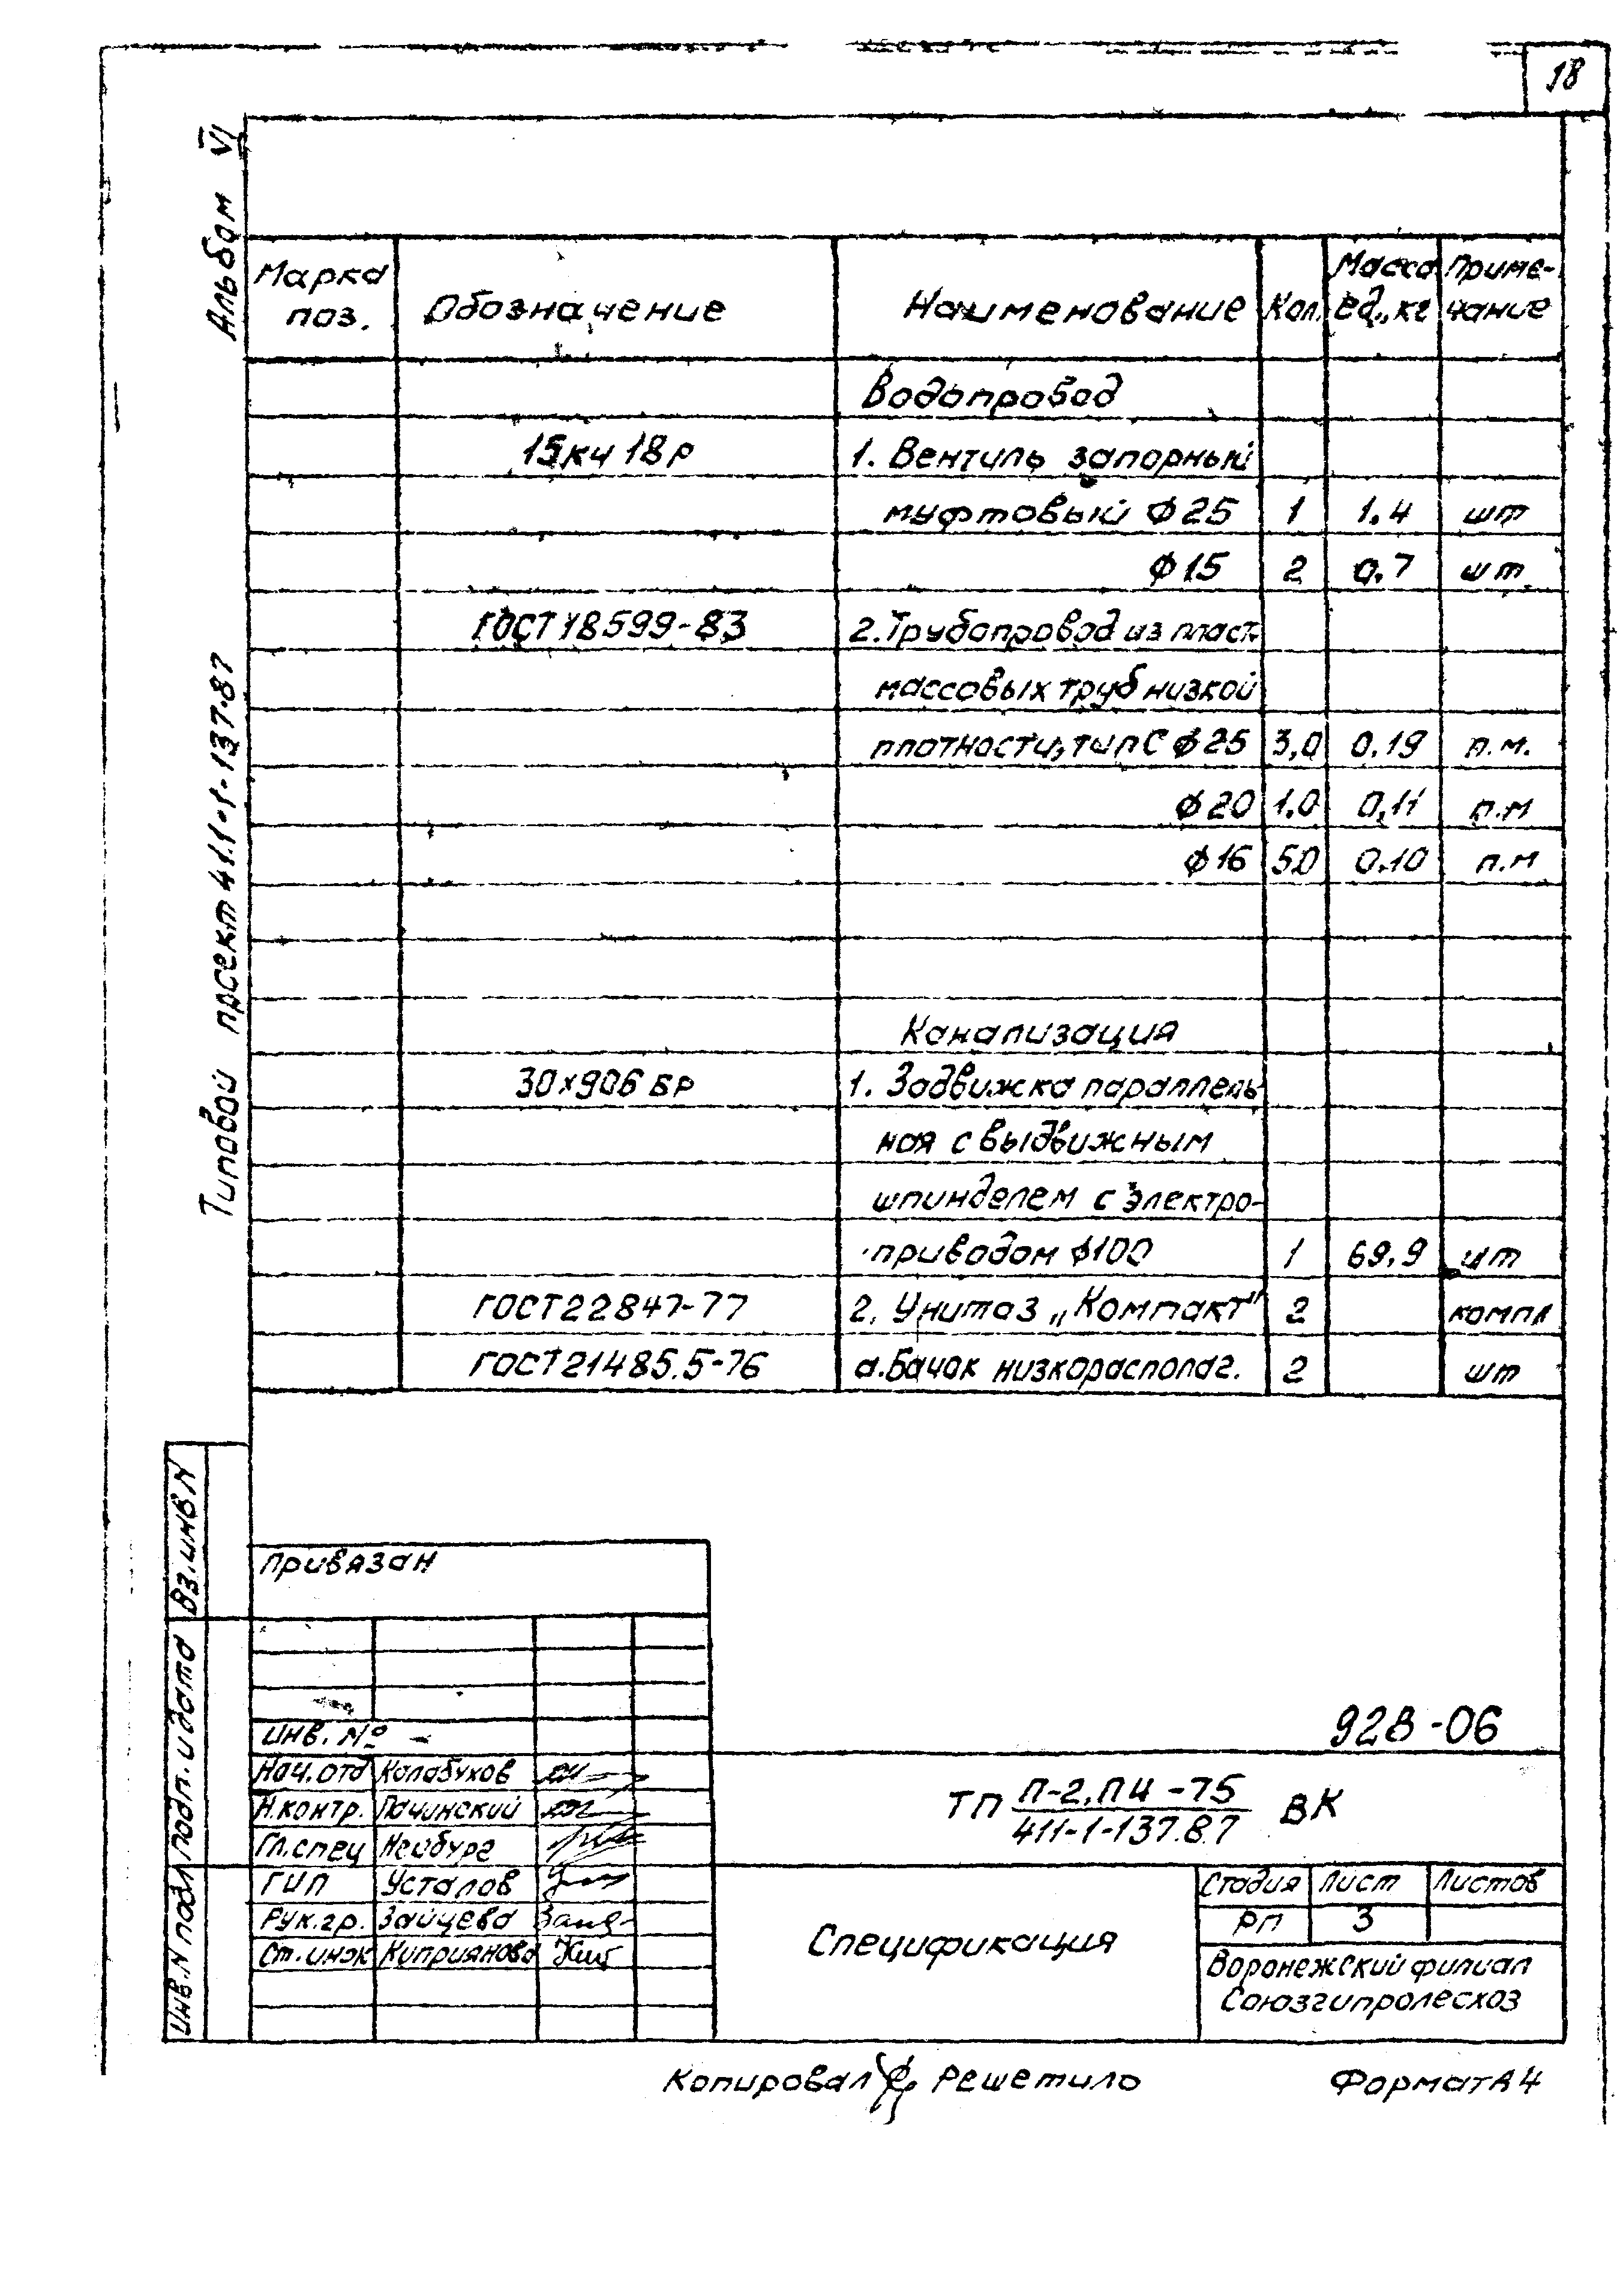 18
Альбом VI
Типовой проект 411-1-137.87
Марка поз. Обозначение Наименование Кол. Масса ед., кг Приме-чание
Водопровод
15кч 18р 1. Вентиль запорный
муфтовый ф 25 1 1.4 шт
ф 15 2 0.7 шт
ГОСТ 18599-83 2. Трубопровод из пласт-
массовых труб низкой
плотности, тип С ф 25 3,0 0.19 п.м.
ф 20 1.0 0,11 п.м
ф 16 5.0 0.10 п.м
Канализация
30х906 БР 1. Задвижка параллель-
ная с выдвижным
шпинделем с электро-
приводом ф100 1 69.9 шт
ГОСТ 22847-77 2. Унитаз „Компакт" 2 компл
ГОСТ 21485.5-76 а. Бачок низкорасполаг. 2 шт
Вз. инв N
Подп. и дата
Инв. N подл
Привязан
Инв. № -
Нач. отд Калабухов
Н. контр. Пачинский
Гл. спец Нейбург
ГИП Усталов
Рук. гр. Зайцева
Ст. инж Куприянова
928-06
ТП П-2, П И -75 ВК
411-1-137.87
Спецификация
Стадия Лист Листов
РП 3
Воронежский филиал
Союзгипролесхоз
Копировал Решетило Формат А4